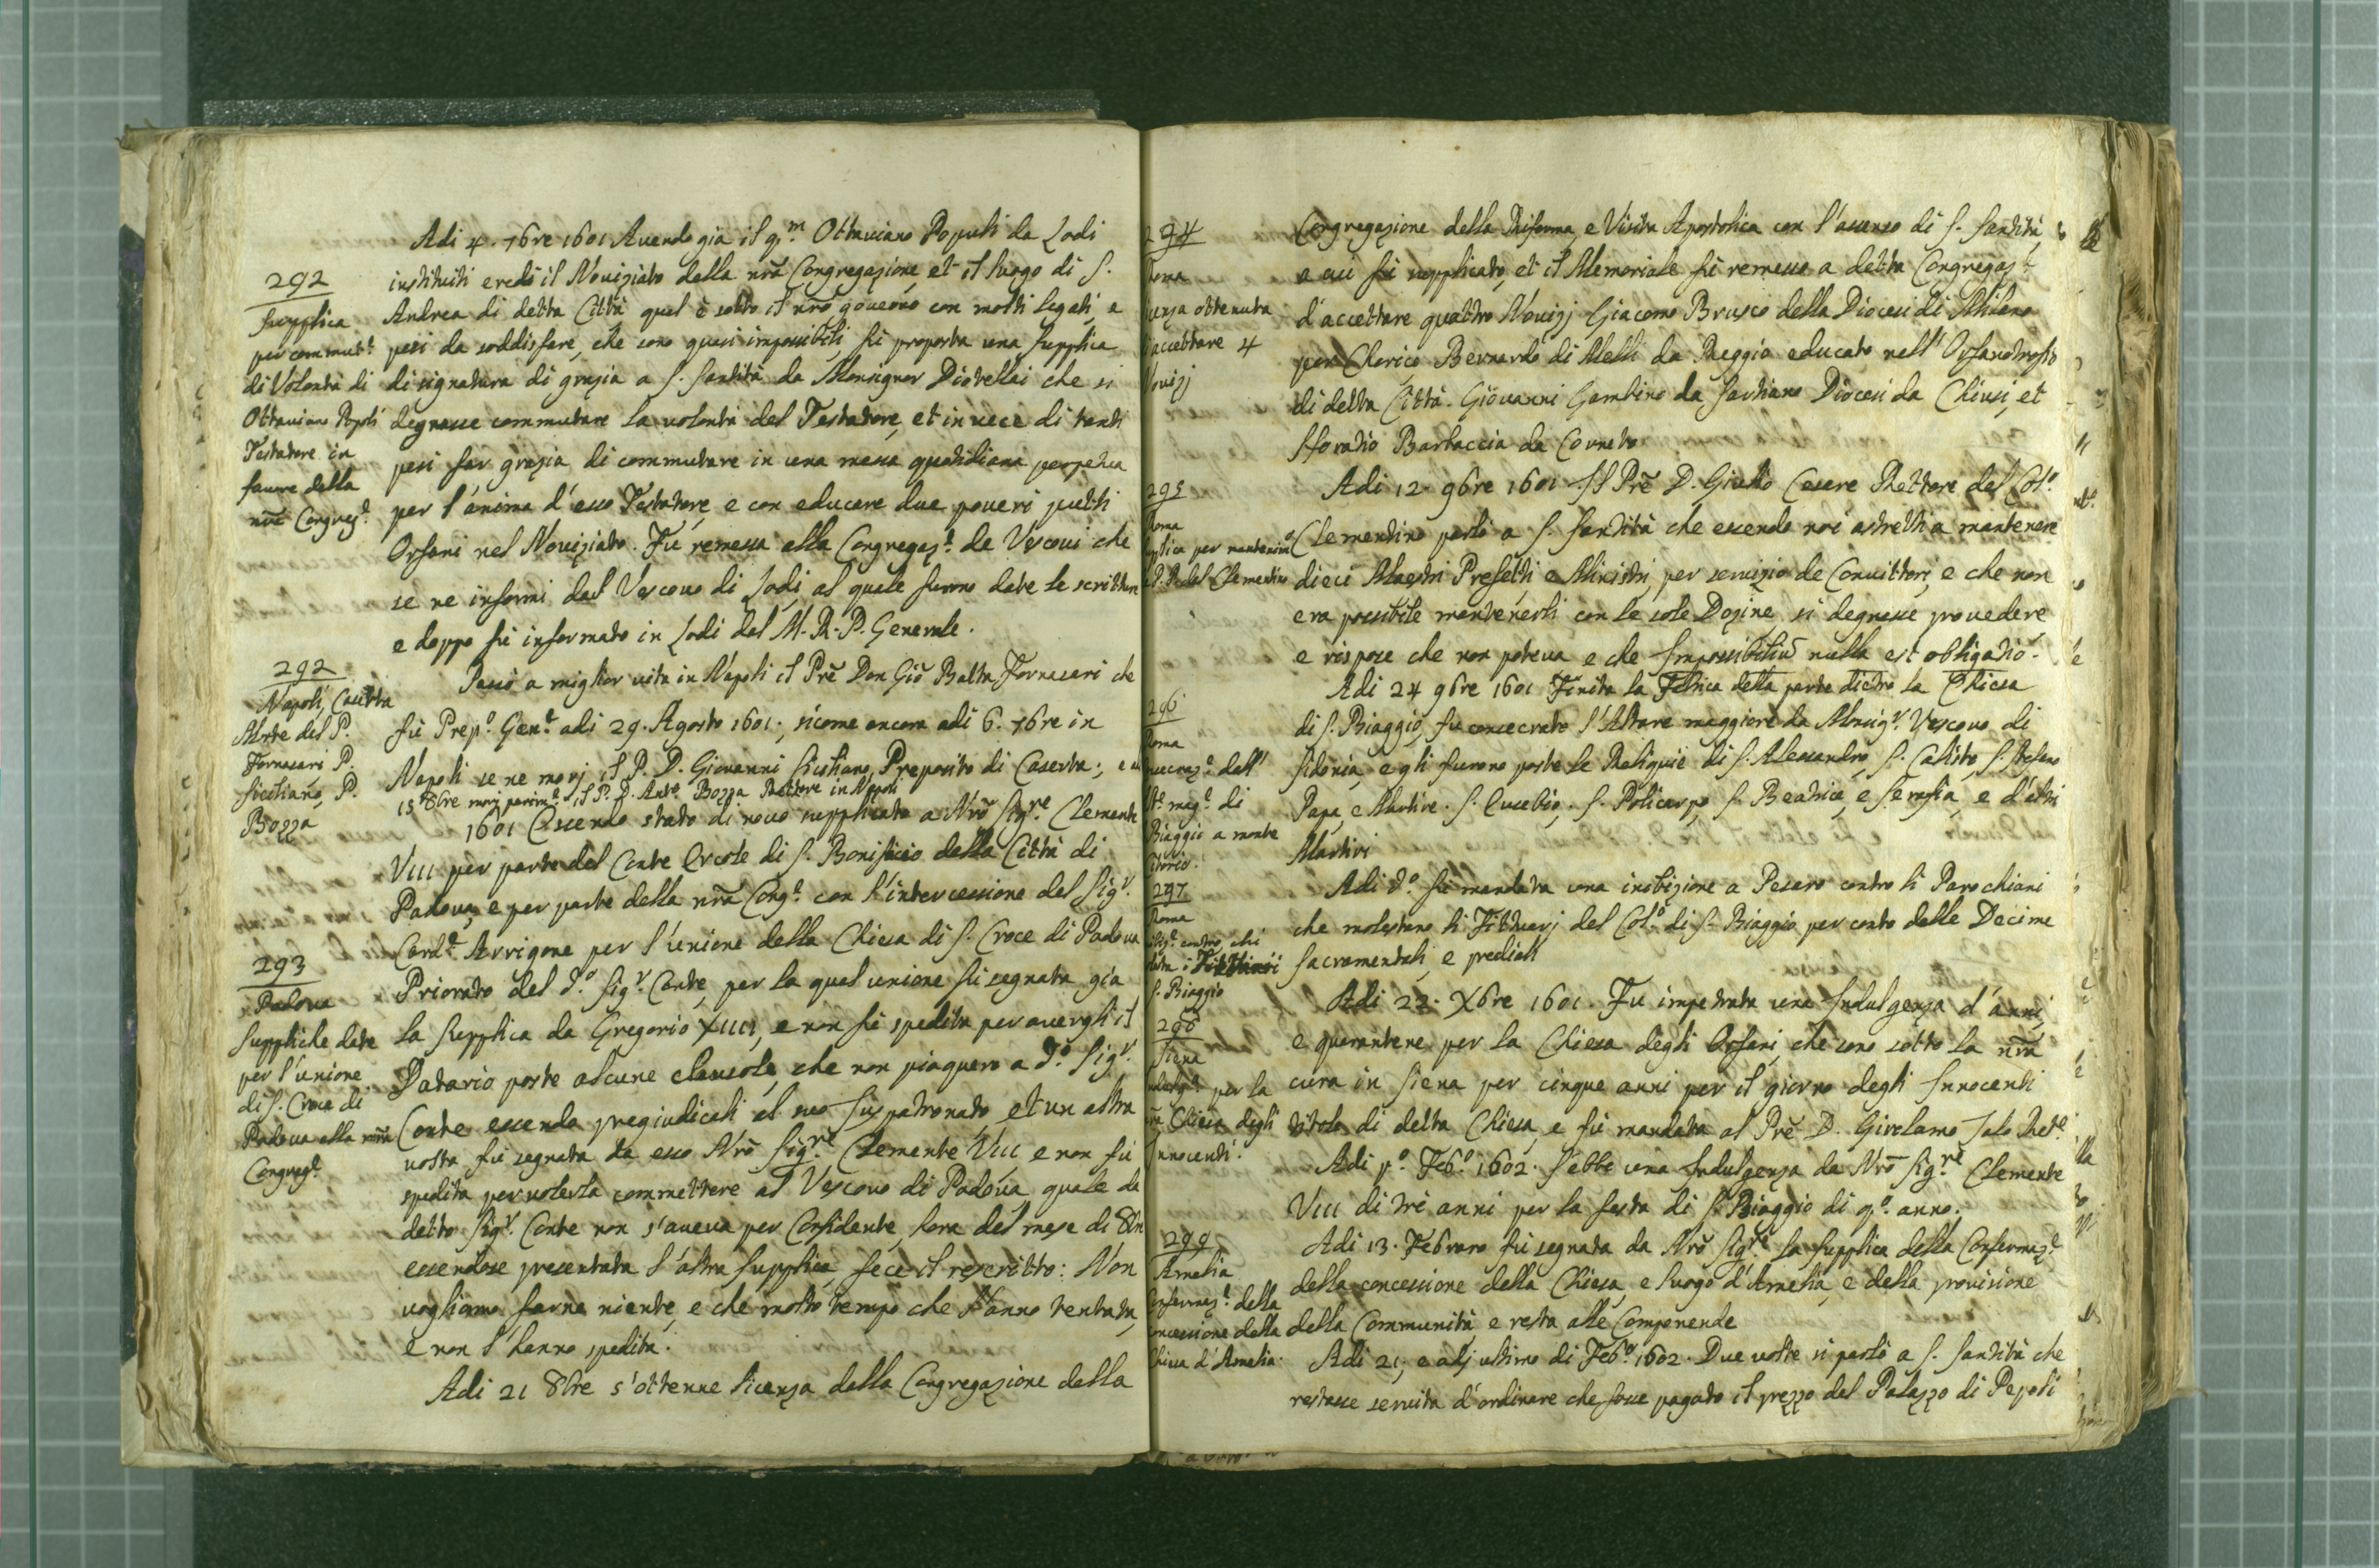 Adi 4. 7bre 1601 Avendo gia il q.m Ottaviano Populi da Lodi
instituiti eredi il Noviziato della nrã Congregazione, et il luogo di S.
Andrea di detta Città qual è sotto il nrõ governo con molti legati, e
pesi da soddisfare, che sono quasi impossibili, fù proposta una supplica
di signatura di grazia a S. Santità da Monsignor Diotellai che si
degnasse commutare la volontà del Testatore, et in vece di tanti
pesi far grazia di commutare in una messa quotidiana perpetua
per l'anima d'esso Testatore, e con educare due poveri putti
Orfani nel Noviziato. Fù remessa alla Congregaz.e de Vescovi che
se ne informi dal Vescovo di Lodi, al quale furono date le scritture
e doppo fù informato in Lodi dal M. R. P. Generale.
292
Supplica
per commut.e
di Volontà di
Ottaviano Popoli
Testatore in
favore della
nrã Congreg.e
Passò a miglior vita in Napoli il Prẽ Don Giõ Batta Fornasari che
fù Prep.o Gen.e adi 29. Agosto 1601., sicome ancora adi 6. 7bre in
Napoli se ne morj il P. D. Giovanni Siciliano, Preposito di Caserta; e
15 8bre morj parim.e il P. D. Ant.o Bozza Rettore in Napoli
292
Napoli, Caserta
Morte del P.
Fornasari P.
Siciliano, P.
Bozza
1601 Essendo stato di novo supplicato a Nrõ Sig.re Clemente
VIII per parte del Conte Ercole di S. Bonifacio della Città di
Padova, e per parte della nrã Cong.e con l'intercessione del Sig.r
Card.e Arrigone per l'unione della Chiesa di S. Croce di Padova
Priorato del d.o Sig.r Conte, per la qual unione fù segnata già
la supplica da Gregorio XIIII, e non fù spedita per avergli il
Datario poste alcune clausole, che non piaquero a d.o Sig.r
Conte essendo pregiudicali al suo Juspatronato, et un altra
volta fù segnata da esso Nrõ Sig.re Clemente VIII e non fù
spedita per volerla commettere al Vescovo di Padova quale da
detto Sig.r Conte non s'aveva per Confidente, hora del mese di 8bre
essendose presentata l'altra supplica, fece il rescritto: Non
vogliamo farne niente, e che molto tempo che l'anno tentata,
e non l'hanno spedita.
293
Padova
Suppliche date
per l'unione
di S. Croce di
Padova alla nrã
Congreg.e
Adi 21 8bre s'ottenne licenza dalla Congregazione della
Congregazione della Riforma, e Visita Apostolica con l'assenso di S. Santità,
a cui fù supplicato, et il Memoriale fù remesso a detta Congregaz.e
d'accettare quattro Novizj Giacomo Brusco della Diocesi di Milano
per Chierico, Bernardo di Melli da Reggio educato nell'Orfanotrofio
di detta Città. Giovanni Gambino da Sartiano Diocesi da Chiusi, et
Horatio Barbaccia da Corneto
294
Roma
accettare 4
Novizj
Adi 12. 9bre 1601 Il Prẽ D. Giulio Cesare Rettore del Col.o
Clementino parlò a S. Santità che essendo noi astretti a mantenere
dieci Maestri Prefetti e Ministri, per servizio de Convittori, e che non
era possibile mantenerli con le sole Dozine, si degnasse provedere
e rispose che non poteva e che Impossibiliũ nulla est obligatio.
295
Roma
per mantenim.o
del Clementino
Adi 24 9bre 1601 Finita la Fabrica della parte dietro la Chiesa
di S. Biaggio, fu consecrato l'Altare maggiore da Monsig.r Vescovo di
Sidonia, e gli furono poste le Reliquie di S. Alessandro, S. Calisto, S. Stefano
Papa, e Martire. S. Eusebio, S. Policarpo, S. Beatrice, e Serafia, e d'altri
Martiri
296
Roma
dell'
mag.e di
Biaggio a monte
Citorio.
Adi d.o fù mandata una inibizione a Pesaro contro li Parochiani
che molestano li Fittuarj del Col.o di S. Biaggio per conto delle Decime
sacramentali, e prediali
297
Roma
contro chi
S. Biaggio
Adi 22. Xbre 1601. Fu impetrata una Indulgenza d'anni,
e quarantene per la Chiesa degli Orfani, che sono sotto la nrã
cura in Siena per cinque anni per il giorno degli Innocenti
titolo di detta Chiesa, e fù mandata al Prẽ D. Girolamo Jalo Ret.e
298
Siena
per la
Chiesa degli
Innocenti.
Adi p.o Feb.o 1602. S'ebbe una Indulgenza da Nrõ Sig.re Clemente
VIII di tre anni per la festa di S. Biaggio di q.o anno.
Adi 13. Febraro fù segnata da Nrõ Sig.re la supplica della Confermaz.e
della concessione della Chiesa, e luogo d'Amelia, e della provisione
della Communità, e resta alle Componende
299
Amelia
Confermaz.e della
concessione della
Chiesa d'Amelia.
Adi 21, e alj ultimo di Feb.o 1602. Due volte si parlò a S. Santità che
restasse servita d'ordinare che fosse pagato il prezzo del Palazzo di Pepoli